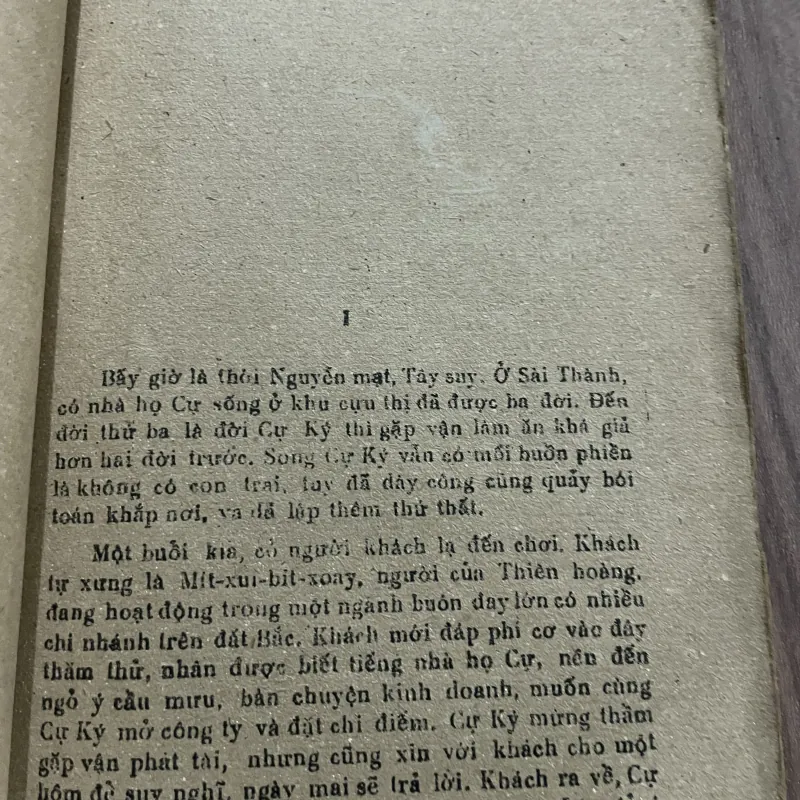 I
Bấy giờ là thời Nguyễn mạt, Tây suy. Ở Sài Thành,
có nhà họ Cự sống ở khu cựu thị đã được ba đời. Đến
đời thứ ba là đời Cự Ký thì gặp vận làm ăn khá giả
hơn hai đời trước. Song Cự Ký vẫn có mối buồn phiền
là không có con trai, tuy đã dày công cúng quảy bói
toán khắp nơi, và đã lập thêm thứ thất.
Một buổi kia, có người khách lạ đến chơi. Khách
tự xưng là Mít-xui-bit-xoay, người của Thiên hoàng,
đang hoạt động trong một ngành buôn dây lớn có nhiều
chi nhánh trên đất Bắc. Khách mới đáp phi cơ vào đây
thăm thử, nhân được biết tiếng nhà họ Cự, nên đến
ngỏ ý cầu mưu, bàn chuyện kinh doanh, muốn cùng
Cự Ký mở công ty và đặt chi điếm. Cự Ký mừng thầm
gặp vận phát tài, nhưng cũng xin với khách cho một
hôm để suy nghĩ, ngày mai sẽ trả lời. Khách ra về, Cự